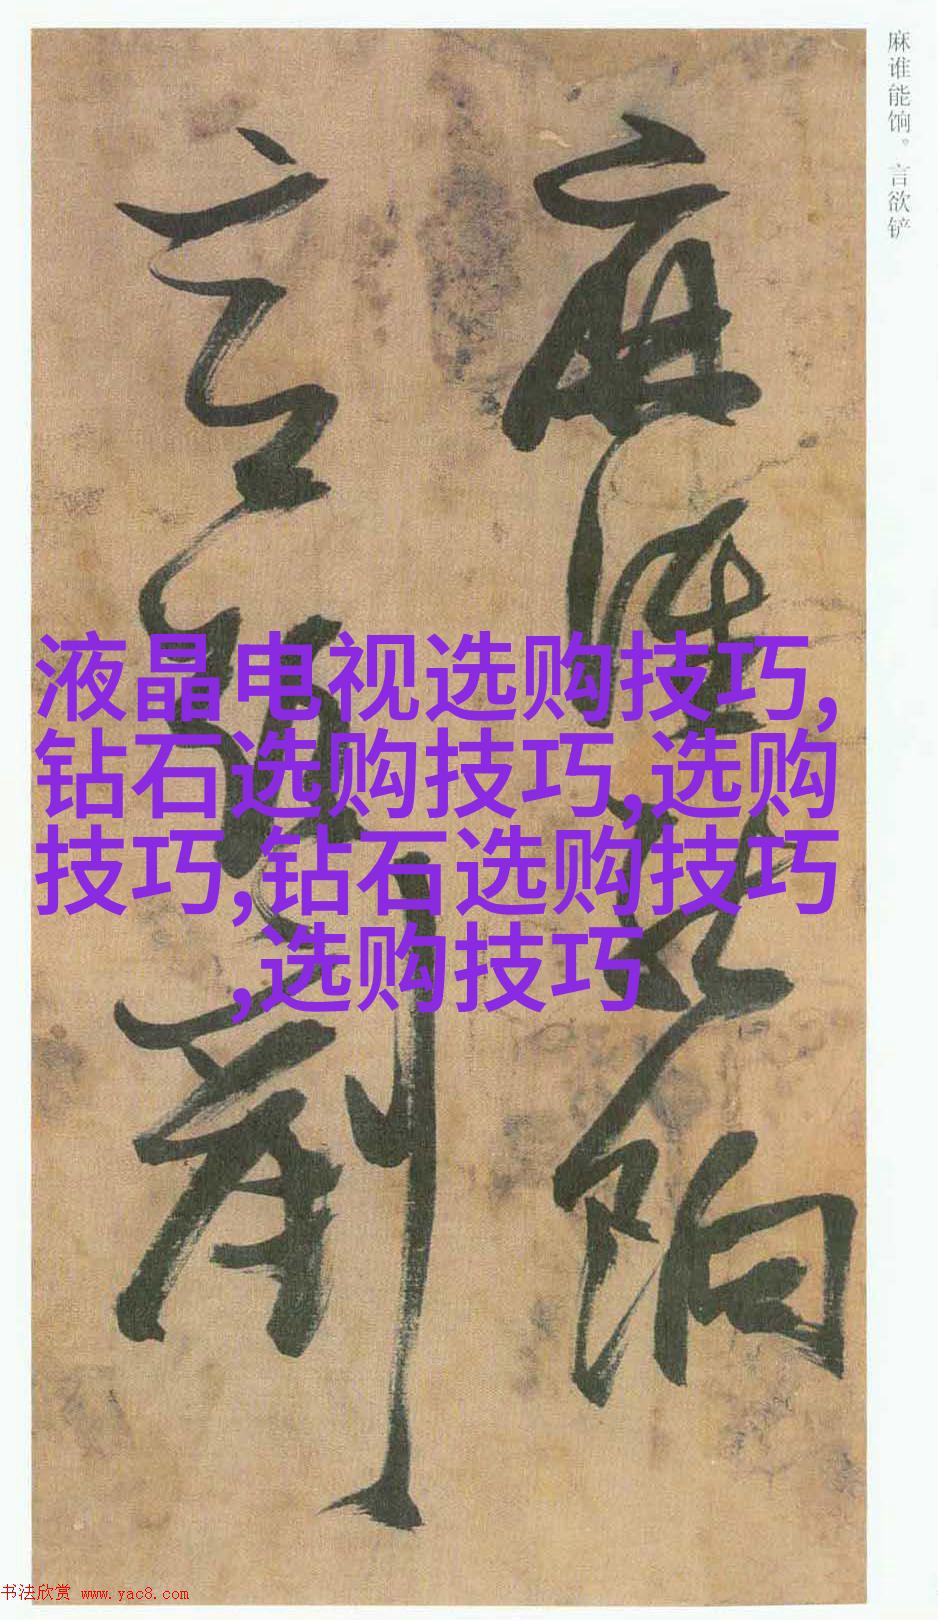 麻谁能饷。言欲铲
麻谁能饷
言欲刬
液晶电视选购技巧,
钻石选购技巧,选购
技巧,钻石选购技巧
,选购技巧
书法欣赏 www.yac8.com